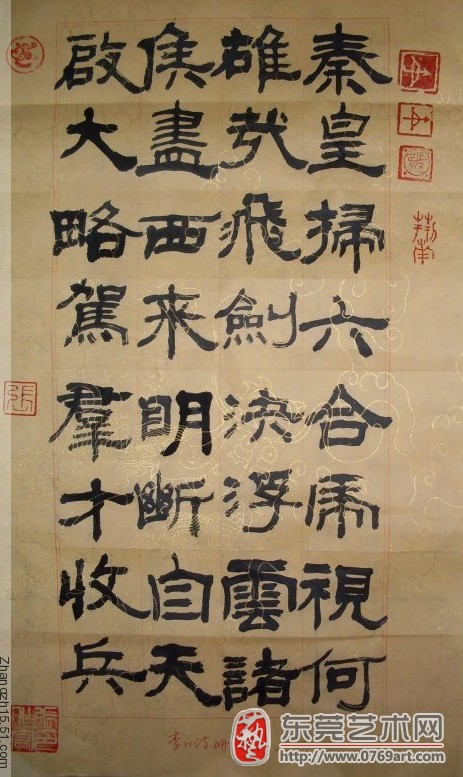 秦皇掃六合虎視何
雄哉飛劍決浮雲諸
侯盡西來明斷自天
啟大略駕羣才收兵
李白诗
張
东莞艺术网
www.0769art.com